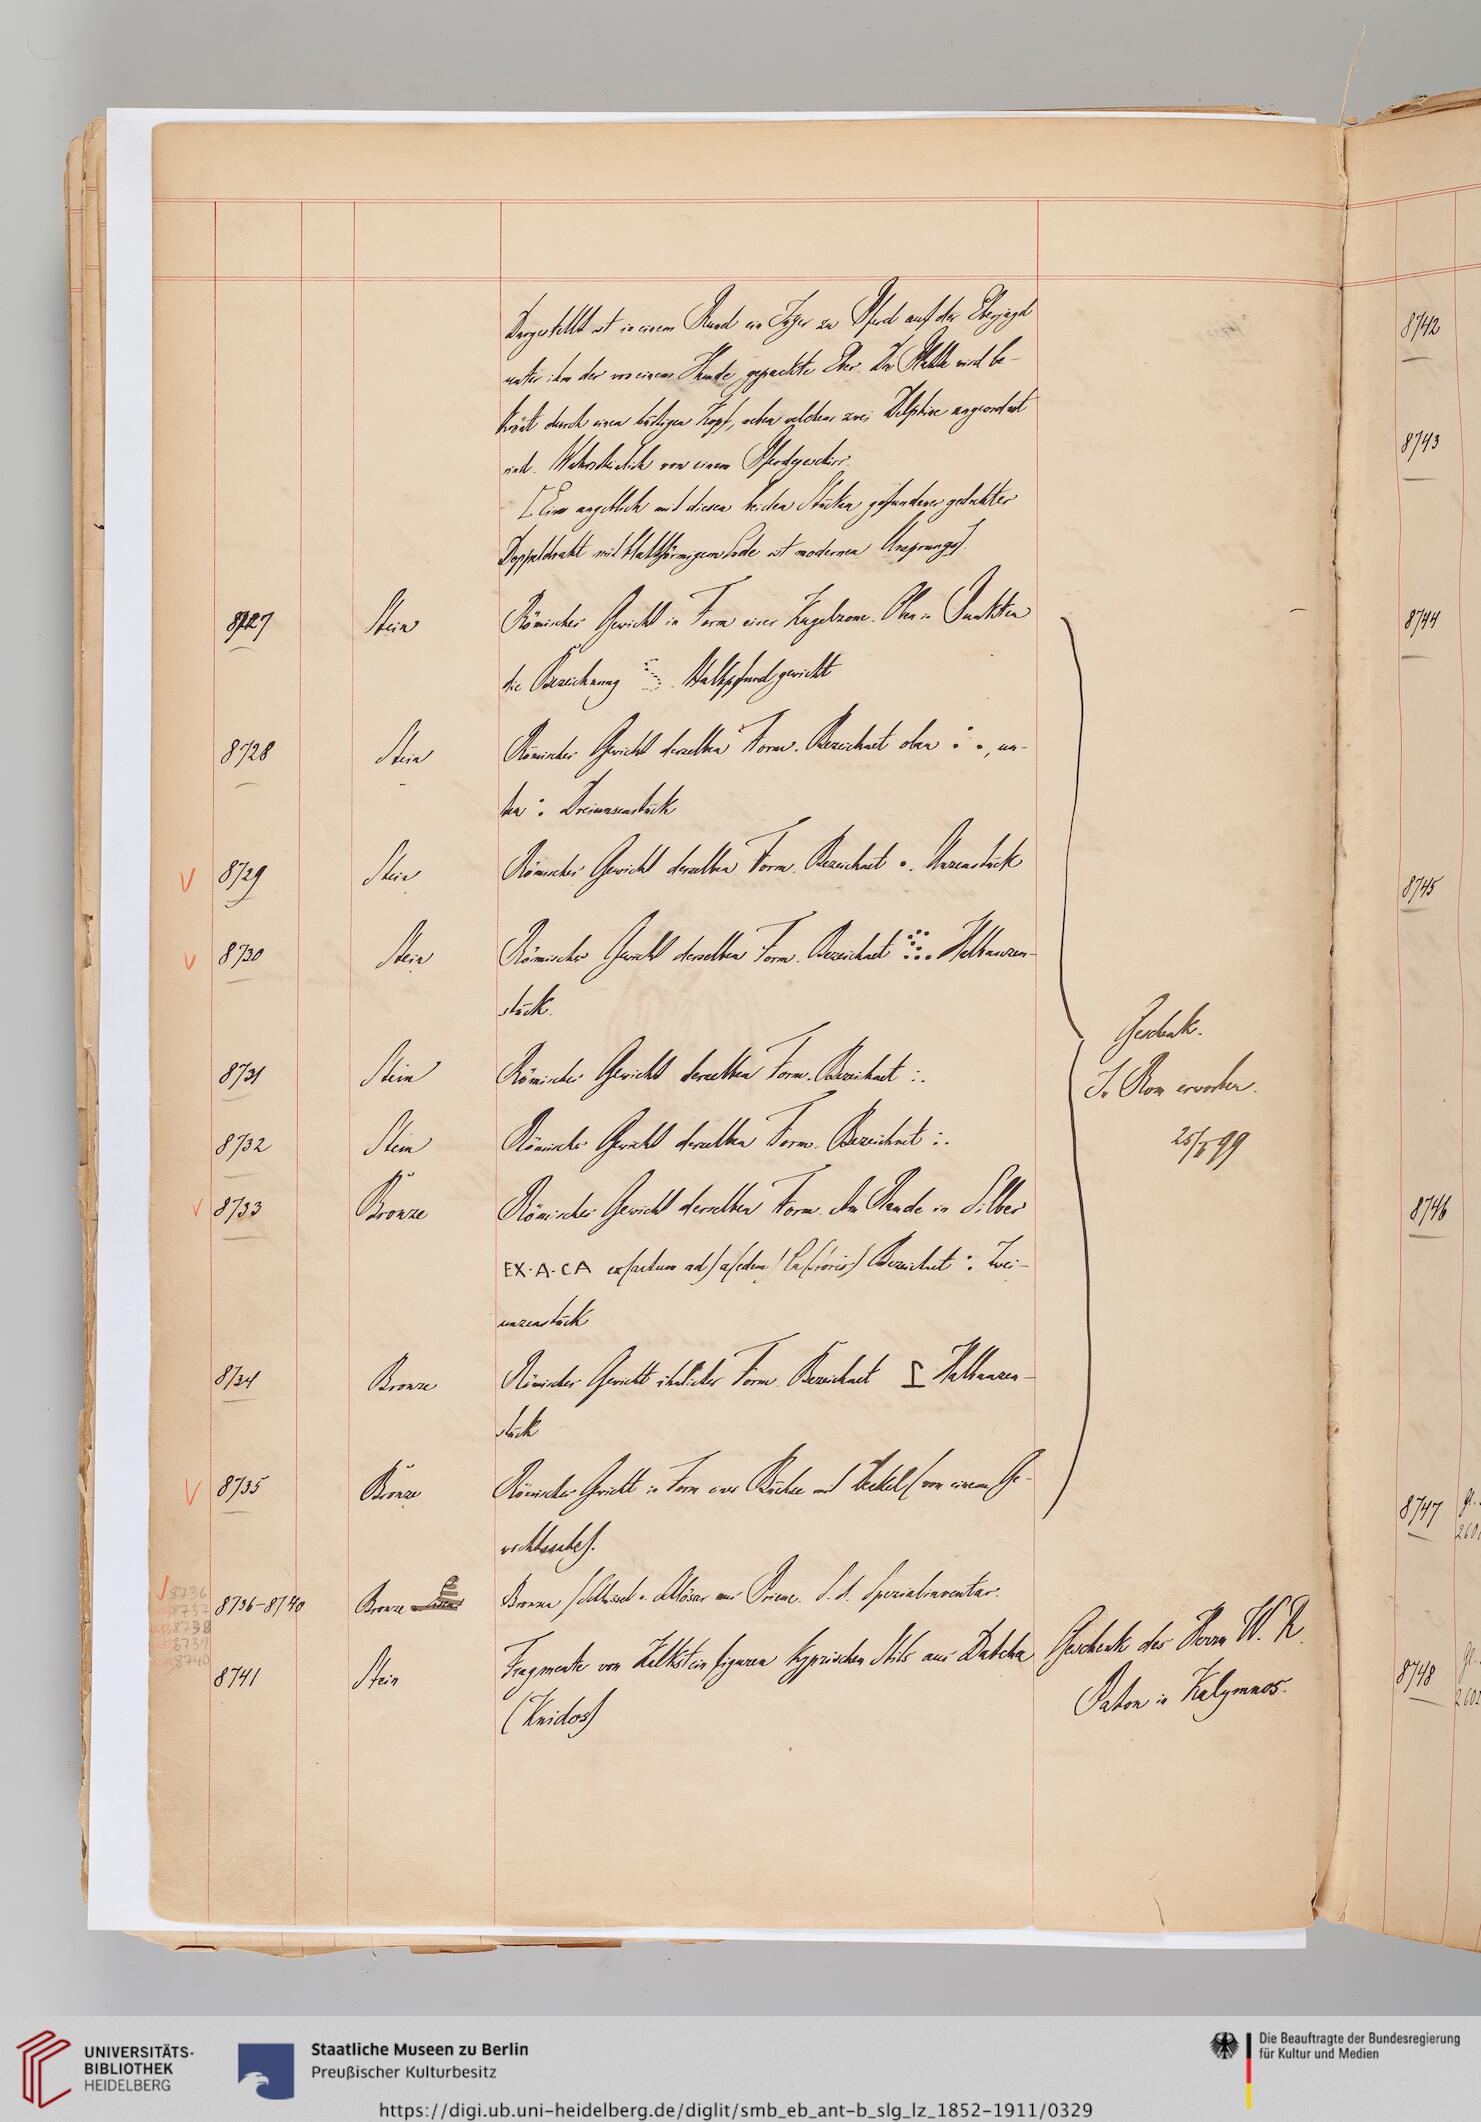 Dargestellt ist in einem Rund ein Jäger zu Pferd auf der Eberjagd
unter ihm der von einem Hunde gepackte Eber. Die Platte wird be-
krönt durch einen bärtigen Kopf, neben welchem zwei Delphine angeordnet
sind. Wahrscheinlich von einem Pferdgeschirr.
[Ein angeblich mit diesen beiden Stücken gefundener gedrehter
Doppeldraht mit blattförmigem Ende ist modernen Ursprungs].
8727 Stein Römisches Gewicht in Form einer Kugelzone. Oben in Punkten
die Bezeichnung S. Halbpfundgewicht
8728 Stein Römisches Gewicht derselben Form. Bezeichnet oben : •, un-
ten : Dreiunzenstück
8729 Stein Römisches Gewicht derselben Form. Bezeichnet •. Unzenstück
8730 Stein Römisches Gewicht derselben Form. Bezeichnet Halbunzen-
stück.
8731 Stein Römisches Gewicht derselben Form. Bezeichnet :.
8732 Stein Römisches Gewicht derselben Form. Bezeichnet :.
Geschenk.
In Rom erworben.
8733 Bronze Römisches Gewicht derselben Form. Am Rande in Silber
EX·A·CA ex(actum ad) a(edem) Ca(storis) Bezeichnet : Zwei-
unzenstück
8734 Bronze Römisches Gewicht ähnlicher Form. Bezeichnet Halbunzen-
stück
8735 Bronze Römisches Gewicht in Form einer Büchse mit Deckel (von einem Ge-
wichtssatze).
8736
8737
8738
8739
8740
8736-8740 Bronze Bronzen (Schlüssel u. Schlösser aus Priene. S. d. Spezialinventar.
8741 Stein Fragmente von Kalksteinfiguren kyprischen Stils aus Datcha
(Knidos)
Geschenk des Herrn W. R.
Paton in Kalymnos.
8742
8743
8744
8745
8746
8747
8748
UNIVERSITÄTS-
BIBLIOTHEK
HEIDELBERG
Staatliche Museen zu Berlin
Preußischer Kulturbesitz
Die Beauftragte der Bundesregierung
für Kultur und Medien
https://digi.ub.uni-heidelberg.de/diglit/smb_eb_ant-b_slg_lz_1852-1911/0329